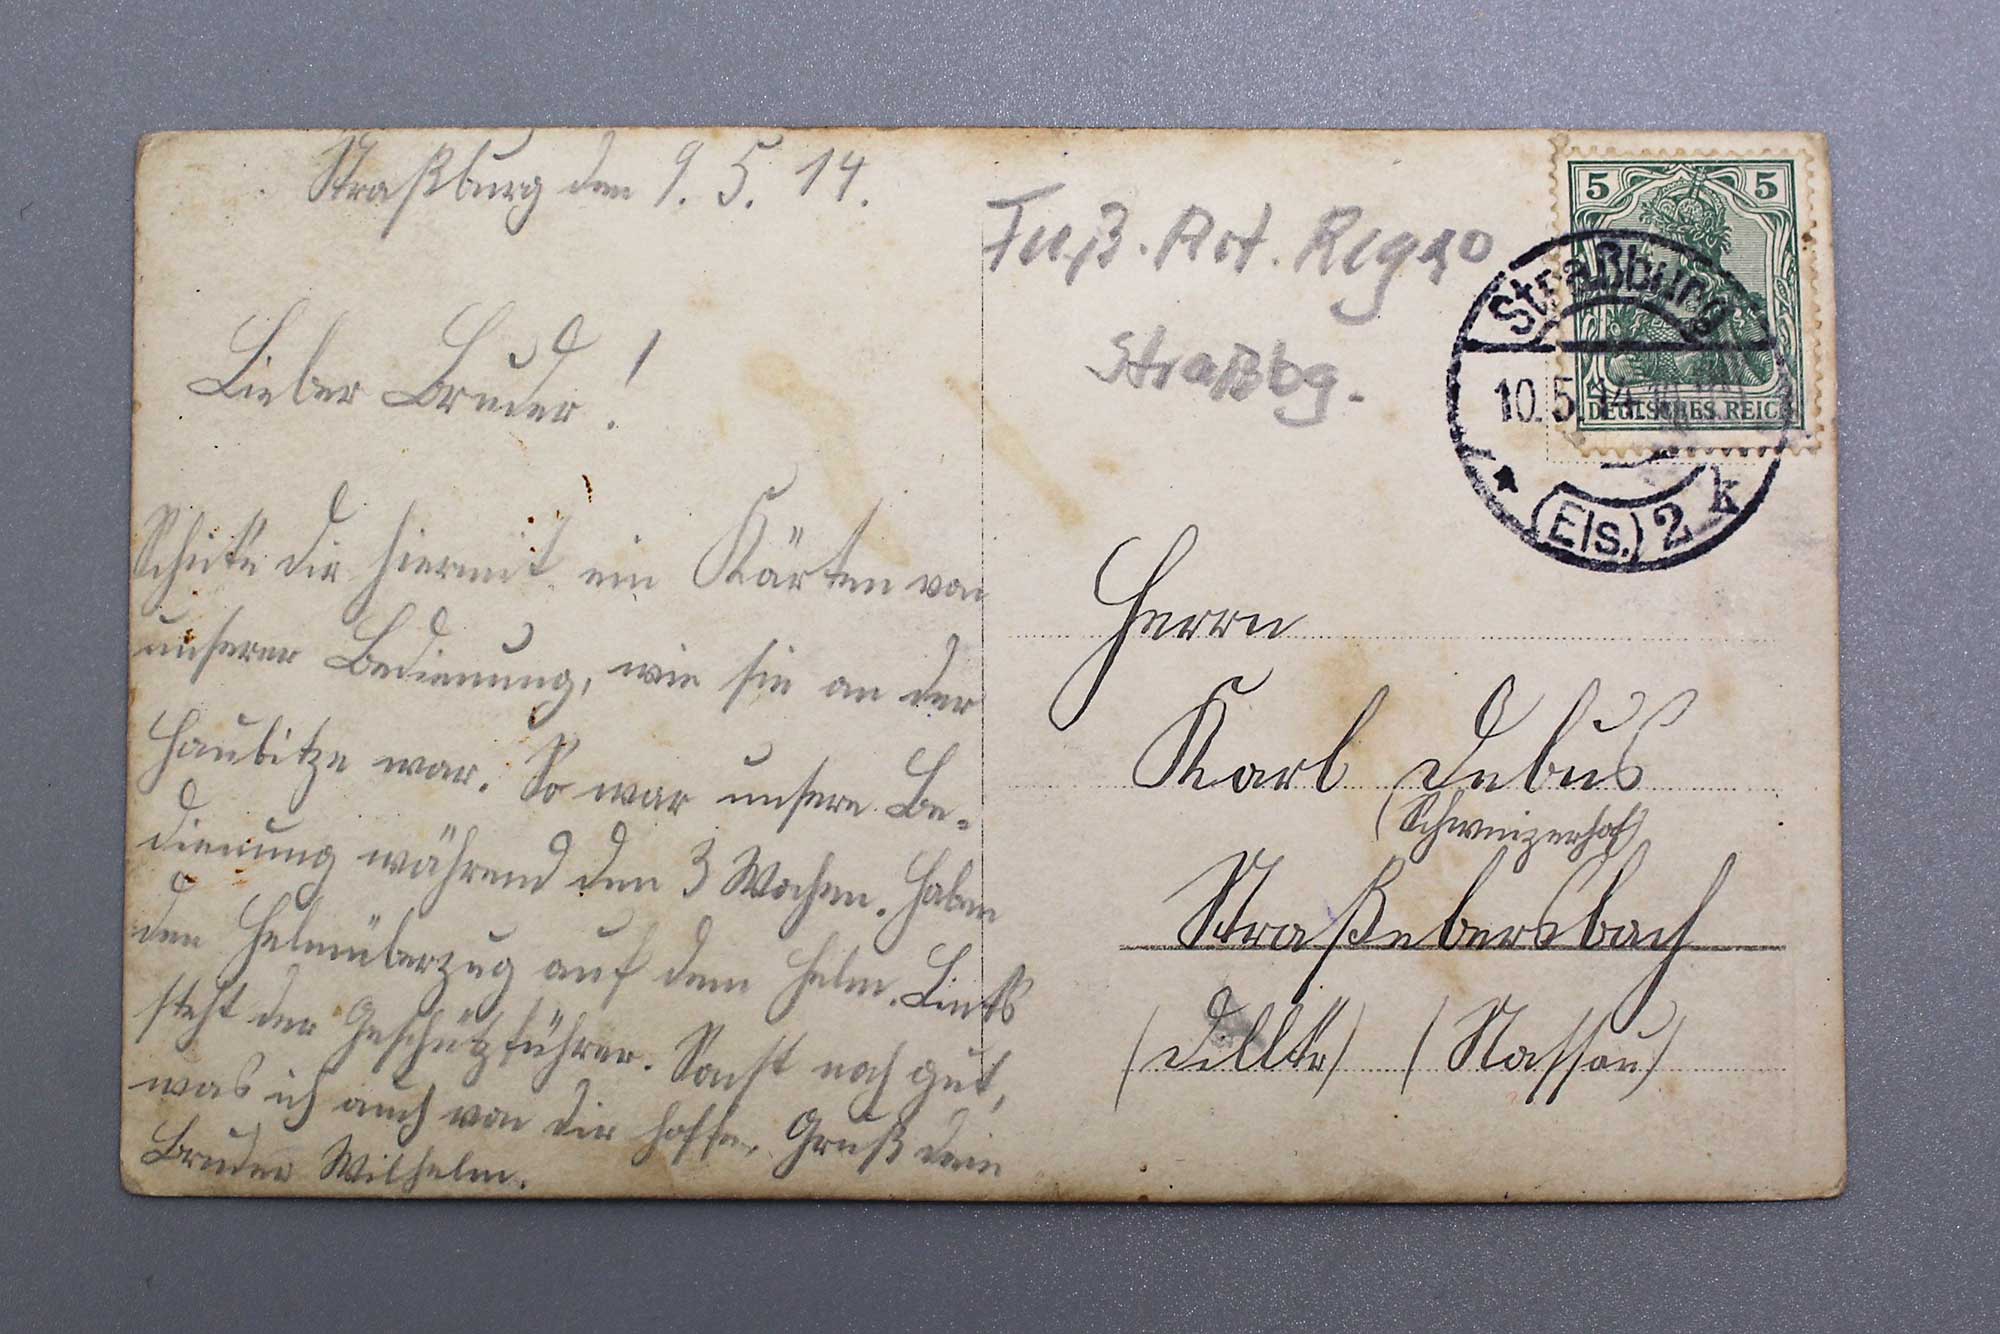 Straßburg den 9. 5. 14.
Lieber Bruder!
Schicke dir hiermit ein Kärten von
unserer Bedienung, wie sie an der
Haubitze war. So war unsere Be-
dienung während den 3 Wochen. Haben
den Helmüberzug auf dem Helm. Links
steht der Geschützführer. Sonst noch gut,
was ich auch von dir hoffe. Gruß dein
Bruder Wilhelm.
Fuß. Art. Reg 10
Straßbg.
5 5
DEUTSCHES REICH
Straßburg
10.5.14
(Els.) 2 k
Herrn
Karl Debus
(Schweizerhof)
Straßebersbach
(Dillkr) (Nassau)